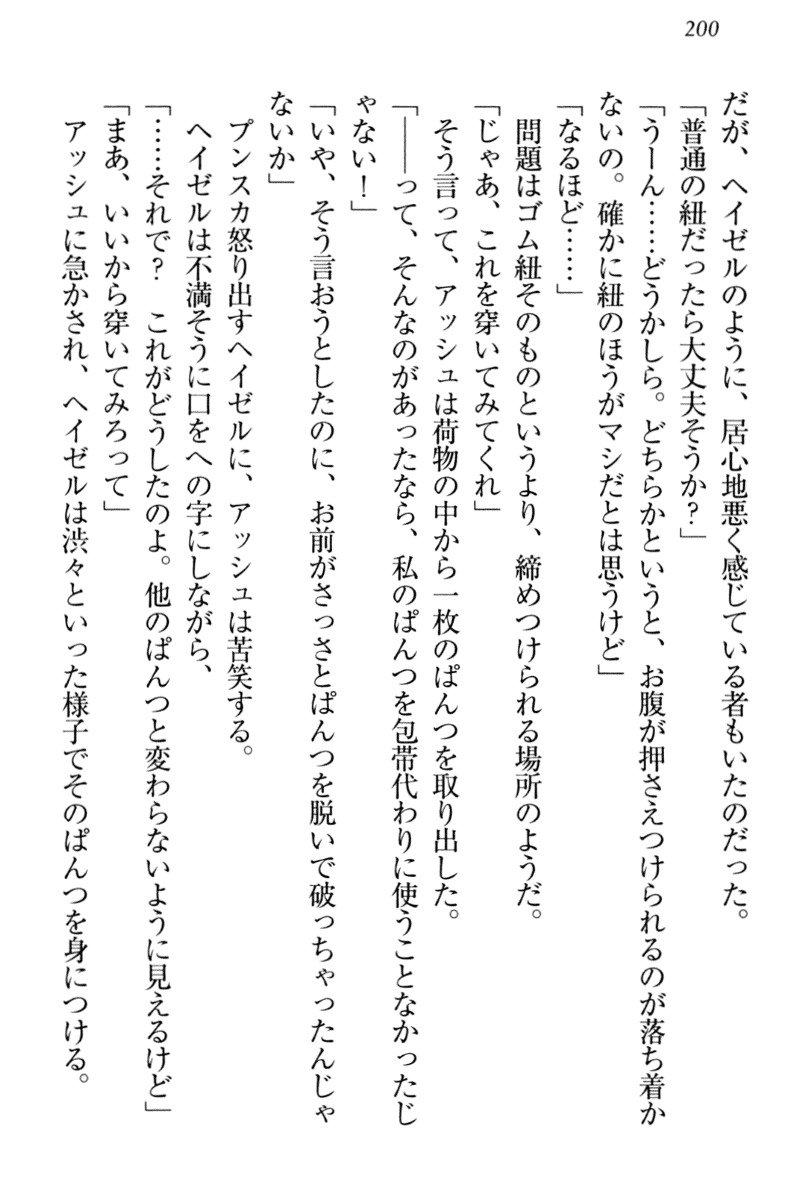 200
だが、ヘイゼルのように、居心地悪く感じている者もいたのだった。
「普通の紐だったら大丈夫そうか?」
「うーん……どうかしら。どちらかというと、お腹が押さえつけられるのが落ち着か
ないの。確かに紐のほうがマシだとは思うけど」
「なるほど……」
問題はゴム紐そのものというより、締めつけられる場所のようだ。
「じゃあ、これを穿いてみてくれ」
そう言って、アッシュは荷物の中から一枚のぱんつを取り出した。
「――って、そんなのがあったなら、私のぱんつを包帯代わりに使うことなかったじ
ゃない!」
「いや、そう言おうとしたのに、お前がさっさとぱんつを脱いで破っちゃったんじゃ
ないか」
プンスカ怒り出すヘイゼルに、アッシュは苦笑する。
ヘイゼルは不満そうに口をへの字にしながら、
「……それで? これがどうしたのよ。他のぱんつと変わらないように見えるけど」
「まあ、いいから穿いてみろって」
アッシュに急かされ、ヘイゼルは渋々といった様子でそのぱんつを身につける。